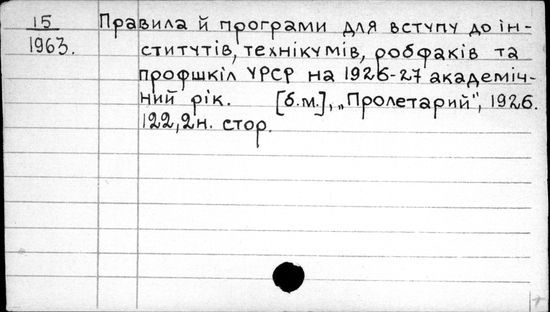 15 Правила й програми для вступу до ін-
1963. ститутів, технікумів, робфаків та
профшкіл УРСР на 1926-27 академіч-
ний рік. [б.м.], „Пролетарий", 1926.
122, 2н. стор.